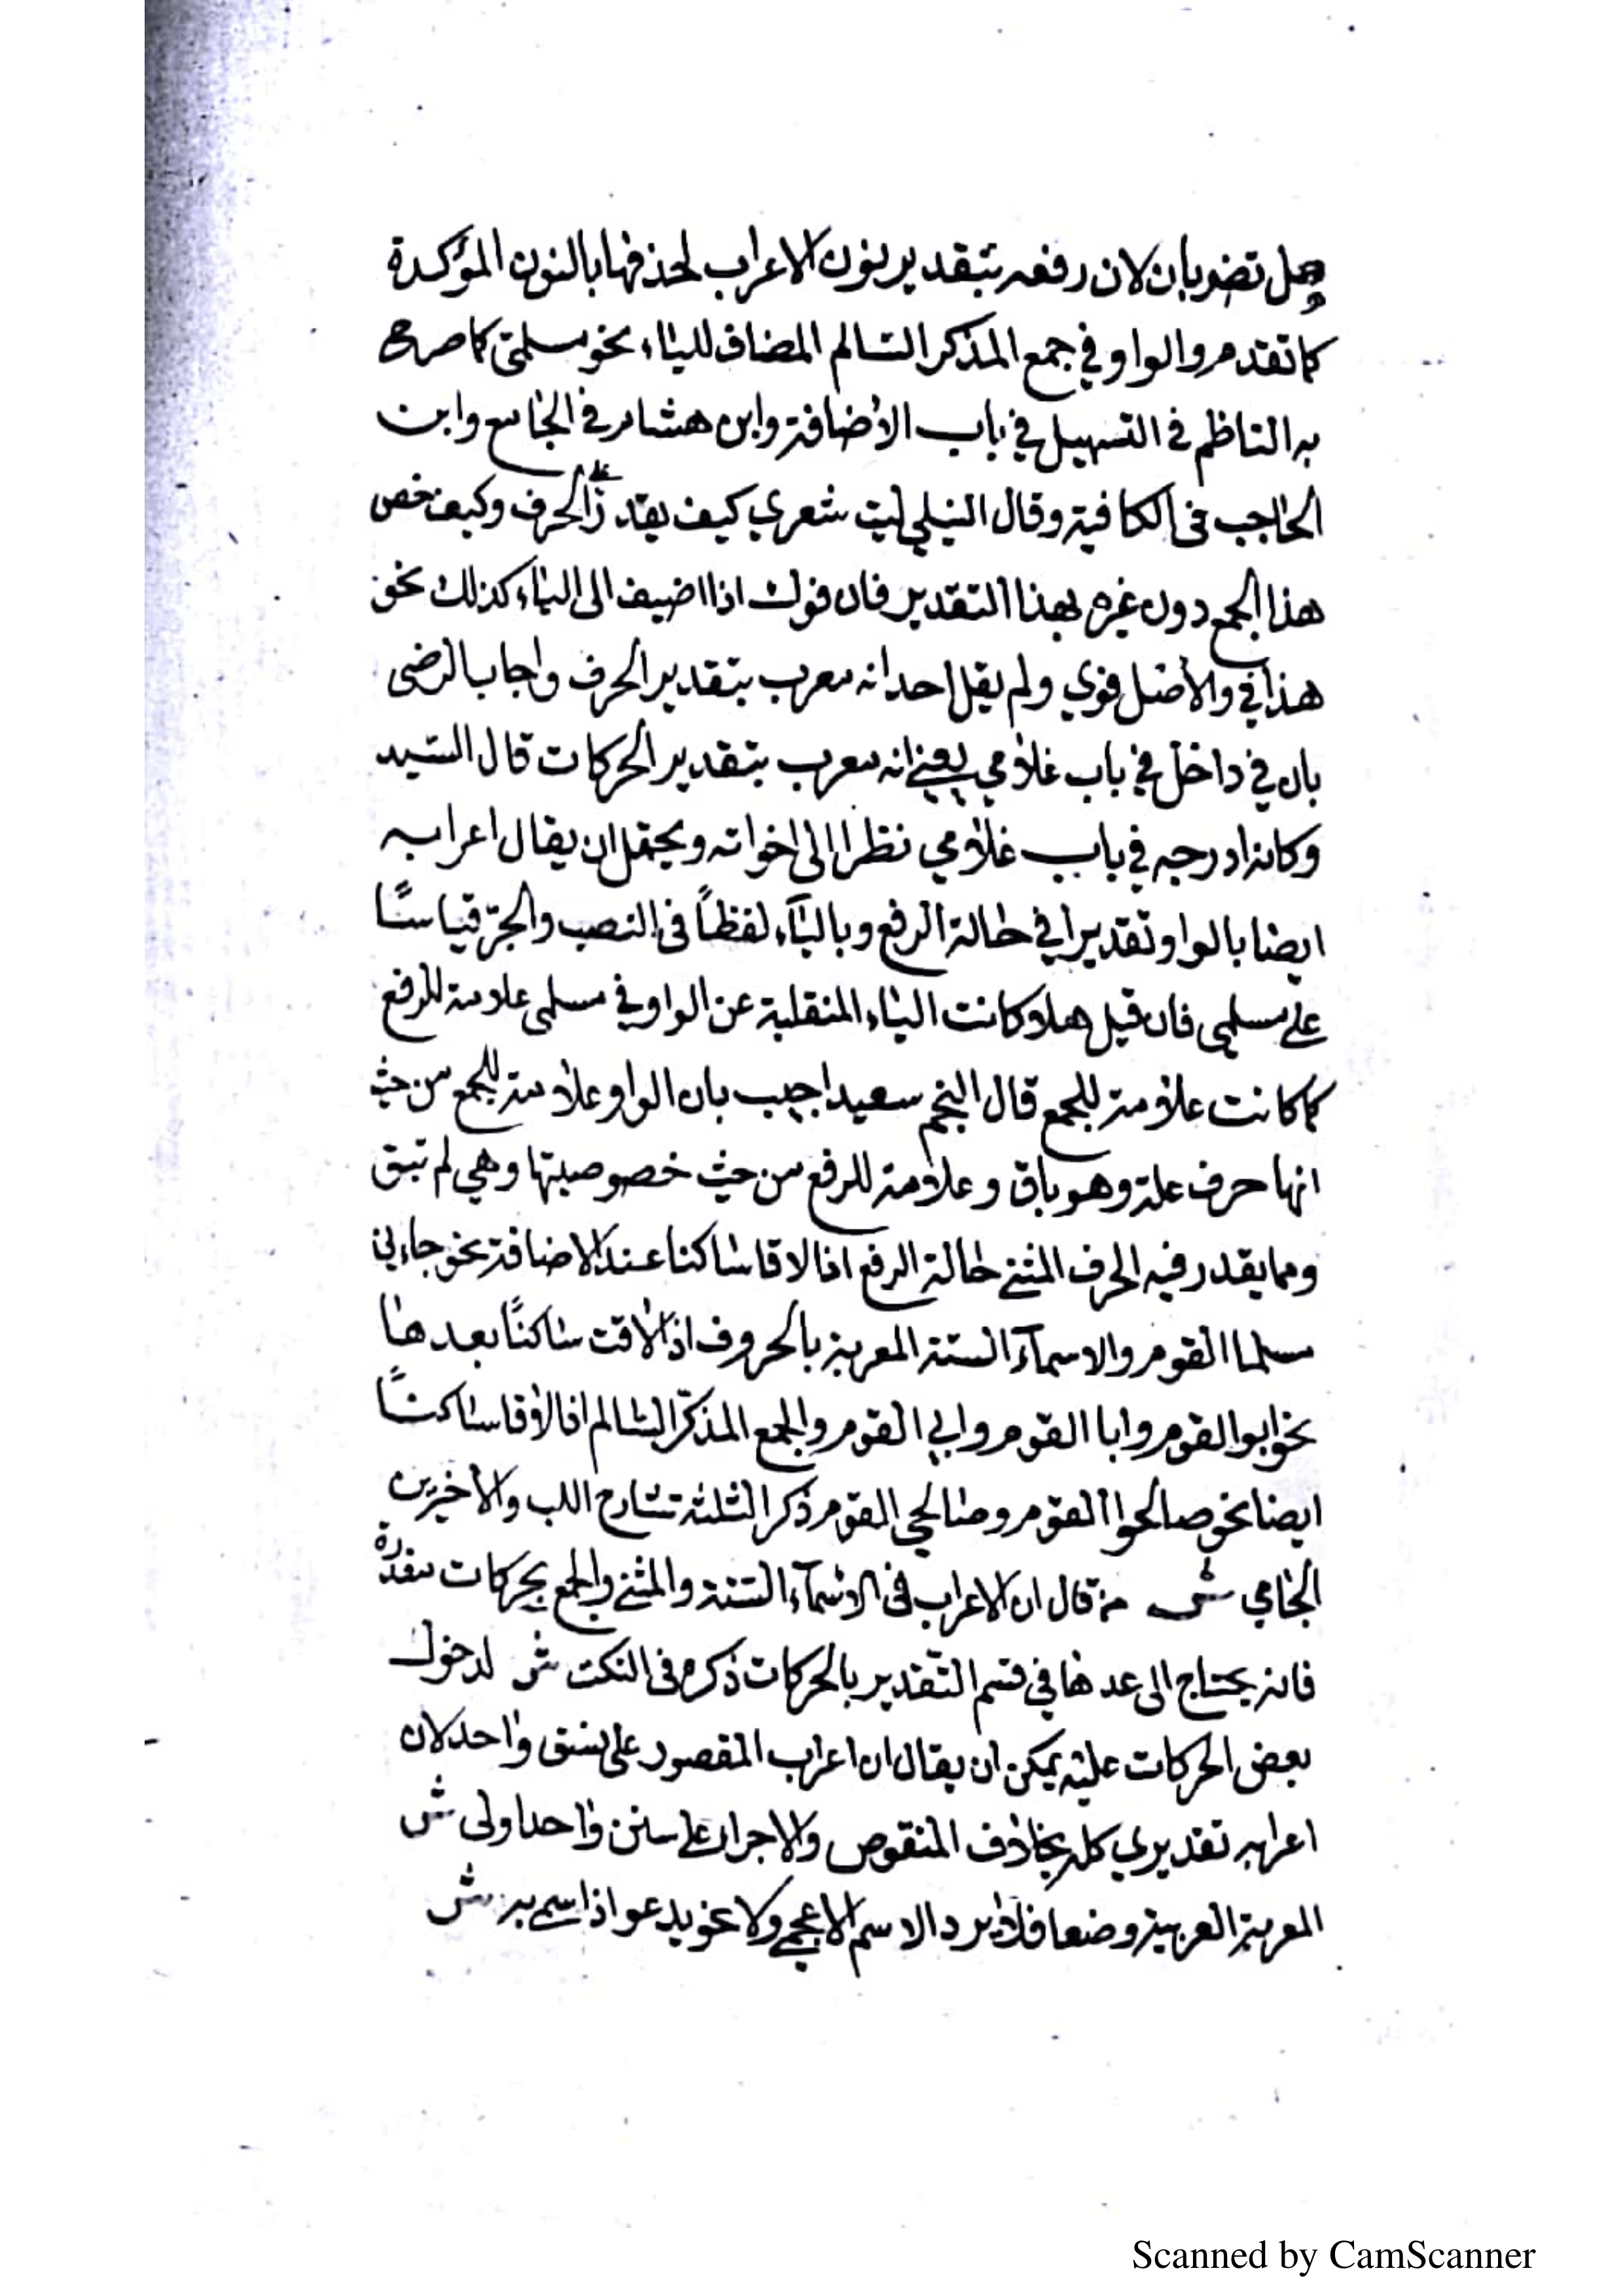 وهل تضربان لان رفعه بتقدير نون الاعراب لحذفها بالنون المؤكدة
كما تقدم والواو في جمع المذكر السالم المضاف للياء نحو مسلمى كما صرح
به الناظم في التسهيل في باب الاضافة وابن هشام في الجامع وابن
الحاجب في الكافية وقال النيلي ليت شعري كيف يقدر الحرف وكيف خص
هذا الجمع دون غيره بهذا التقدير فان فوك اذا اضيف الى الياء كذلك نحو
هذا في والاصل فوي ولم يقل احد انه معرب بتقدير الحرف واجاب الرضى
بان في داخل في باب غلامي يعني انه معرب بتقدير الحركات قال السيد
وكانه ادرجه في باب غلامي نظرا الى اخواته ويحتمل ان يقال اعرابه
ايضا بالواو تقديرا في حالة الرفع وبالياء لفظاً فى النصب والجرّ قياسًا
على مسلمى فان قيل هلا كانت الياء المنقلبة عن الواو في مسلمى علامة للرفع
كما كانت علامة للجمع قال النجم سعيد اجيب بان الواو علامة للجمع من حيث
انها حرف علة وهو باق وعلامة للرفع من حيث خصوصيتها وهي لم تبق
ومما يقدر فيه الحرف المثنى حالة الرفع اذا لاقا ساكنا عند الاضافة نحو جاءني
مسلما القوم والاسمآء الستة المعربة بالحروف اذا لاقت ساكنًا بعدها
نحو ابو القوم وابا القوم وابي القوم والجمع المذكّر السالم اذا لاقا ساكنًا
ايضا نحو صالحوا القوم وصالحي القوم ذكر الثلثة شارح اللب والاخيرين
الجامي ش من قال ان الاعراب فى الاسمآء الستة والمثنى والجمع بحركات مقدرة
فانه يحتاج الى عدها في قسم التقدير بالحركات ذكره فى النكت ش لدخول
بعض الحركات عليه يمكن ان يقال ان اعراب المقصور على نسق واحد لان
اعرابه تقديري كله بخلاف المنقوص والاجراء على سنن واحد اولى ش
المعربة العربية وضعا فلا يرد الاسم الاعجمي ولا نحو يدعو اذا سمي به ش
Scanned by CamScanner